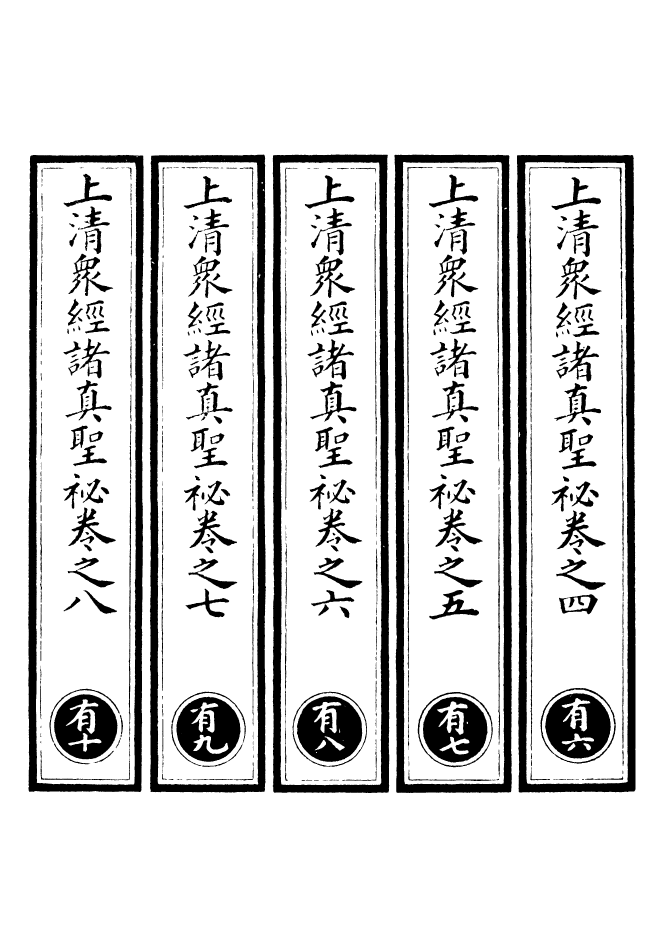 上清衆經諸真聖祕卷之四
有六
上清衆經諸真聖祕卷之五
有七
上清衆經諸真聖祕卷之六
有八
上清衆經諸真聖祕卷之七
有九
上清衆經諸真聖祕卷之八
有十